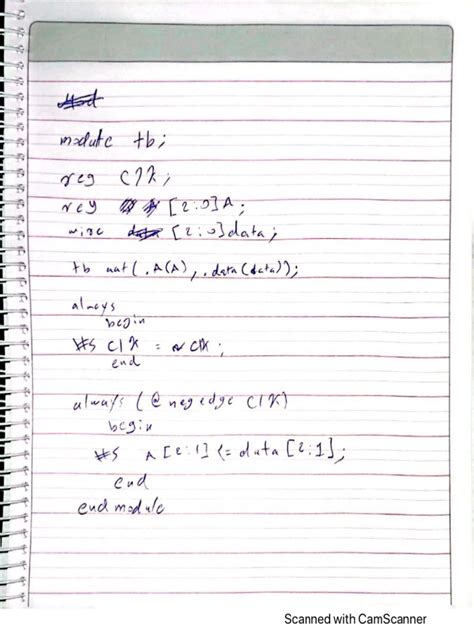 module tb;
reg clk;
reg [2:0]A;
wire [2:0]data;
tb uut(.A(A), .data(data));
always
begin
#5 clk = ~clk;
end
always (@ negedge clk)
begin
#5 A[2:1] <= data[2:1];
end
end module
Scanned with CamScanner